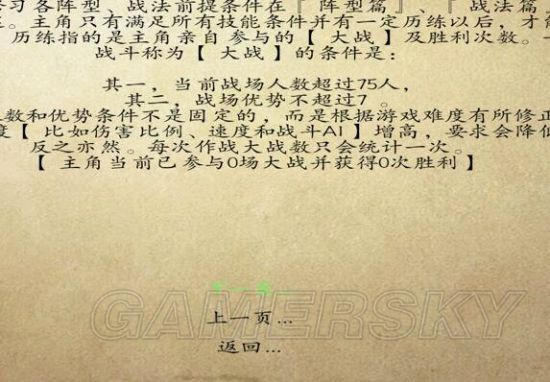 习各阵型、战法前提条件在『阵型篇』、『战法篇
。主角只有满足所有技能条件并有一定历练以后，才能
历练指的是主角亲自参与的【大战】及胜利次数。
战斗称为【大战】的条件是：
其一，当前战场人数超过75人，
其二，战场优势不超过7。
数和优势条件不是固定的，而是根据游戏难度有所修正
度【比如伤害比例、速度和战斗AI】增高，要求会降低
反之亦然。每次作战大战数只会统计一次。
【主角当前已参与0场大战并获得0次胜利】
下一页...
上一页...
返回...
GAMERSKY